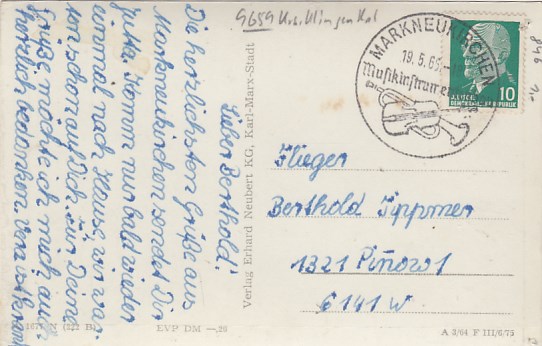 9659 Krs. Klingenthal
Lieber Berthold!
Die herzlichsten Grüße aus
Markneukirchen sendet Dir
Jutta. Komm nur bald wieder
einmal nach Hause, wir war-
ten schon auf Dich. Für Deine
Grüße möchte ich mich auch
herzlich bedanken.
Verlag Erhard Neubert KG, Karl-Marx-Stadt
MARKNEUKIRCHEN
19.5.65
Musikinstrumen
10
DEUTSCHE DEMOKRATISCHE REPUBLIK
Flieger
Berthold
1321 Pinow 1
6141 W
EVP DM –,20
A 3/64 F III/6/75